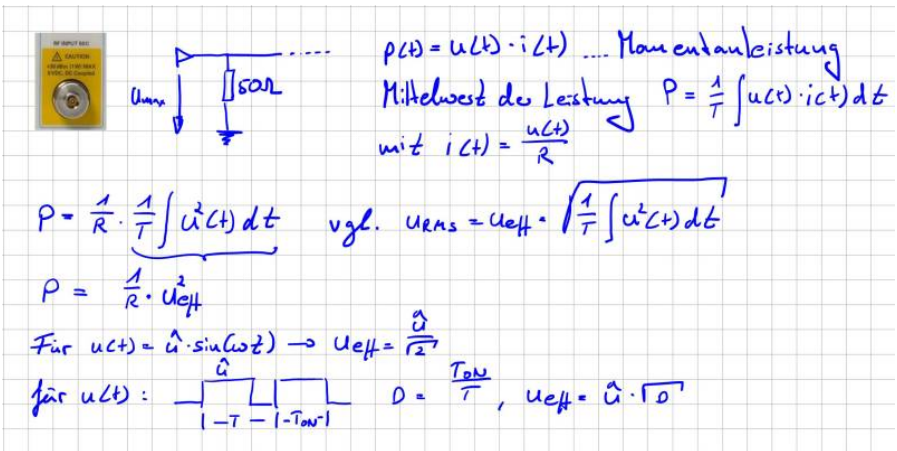 RF INPUT 50Ω
⚠ CAUTION
+30dBm (1W) MAX
0 VDC, DC Coupled
Umax
50Ω
p(t) = u(t) · i(t) .... Momentanleistung
Mittelwert der Leistung P = 1/T ∫ u(t) · i(t) dt
mit i(t) = u(t)/R
P = 1/R · 1/T ∫ u²(t) dt vgl. URMS = Ueff = √(1/T ∫ u²(t) dt)
P = 1/R · U²eff
Für u(t) = û · sin(ωt) → Ueff = û/√2
für u(t) : û |–T–|–TON–| D = TON/T , Ueff = û · √D